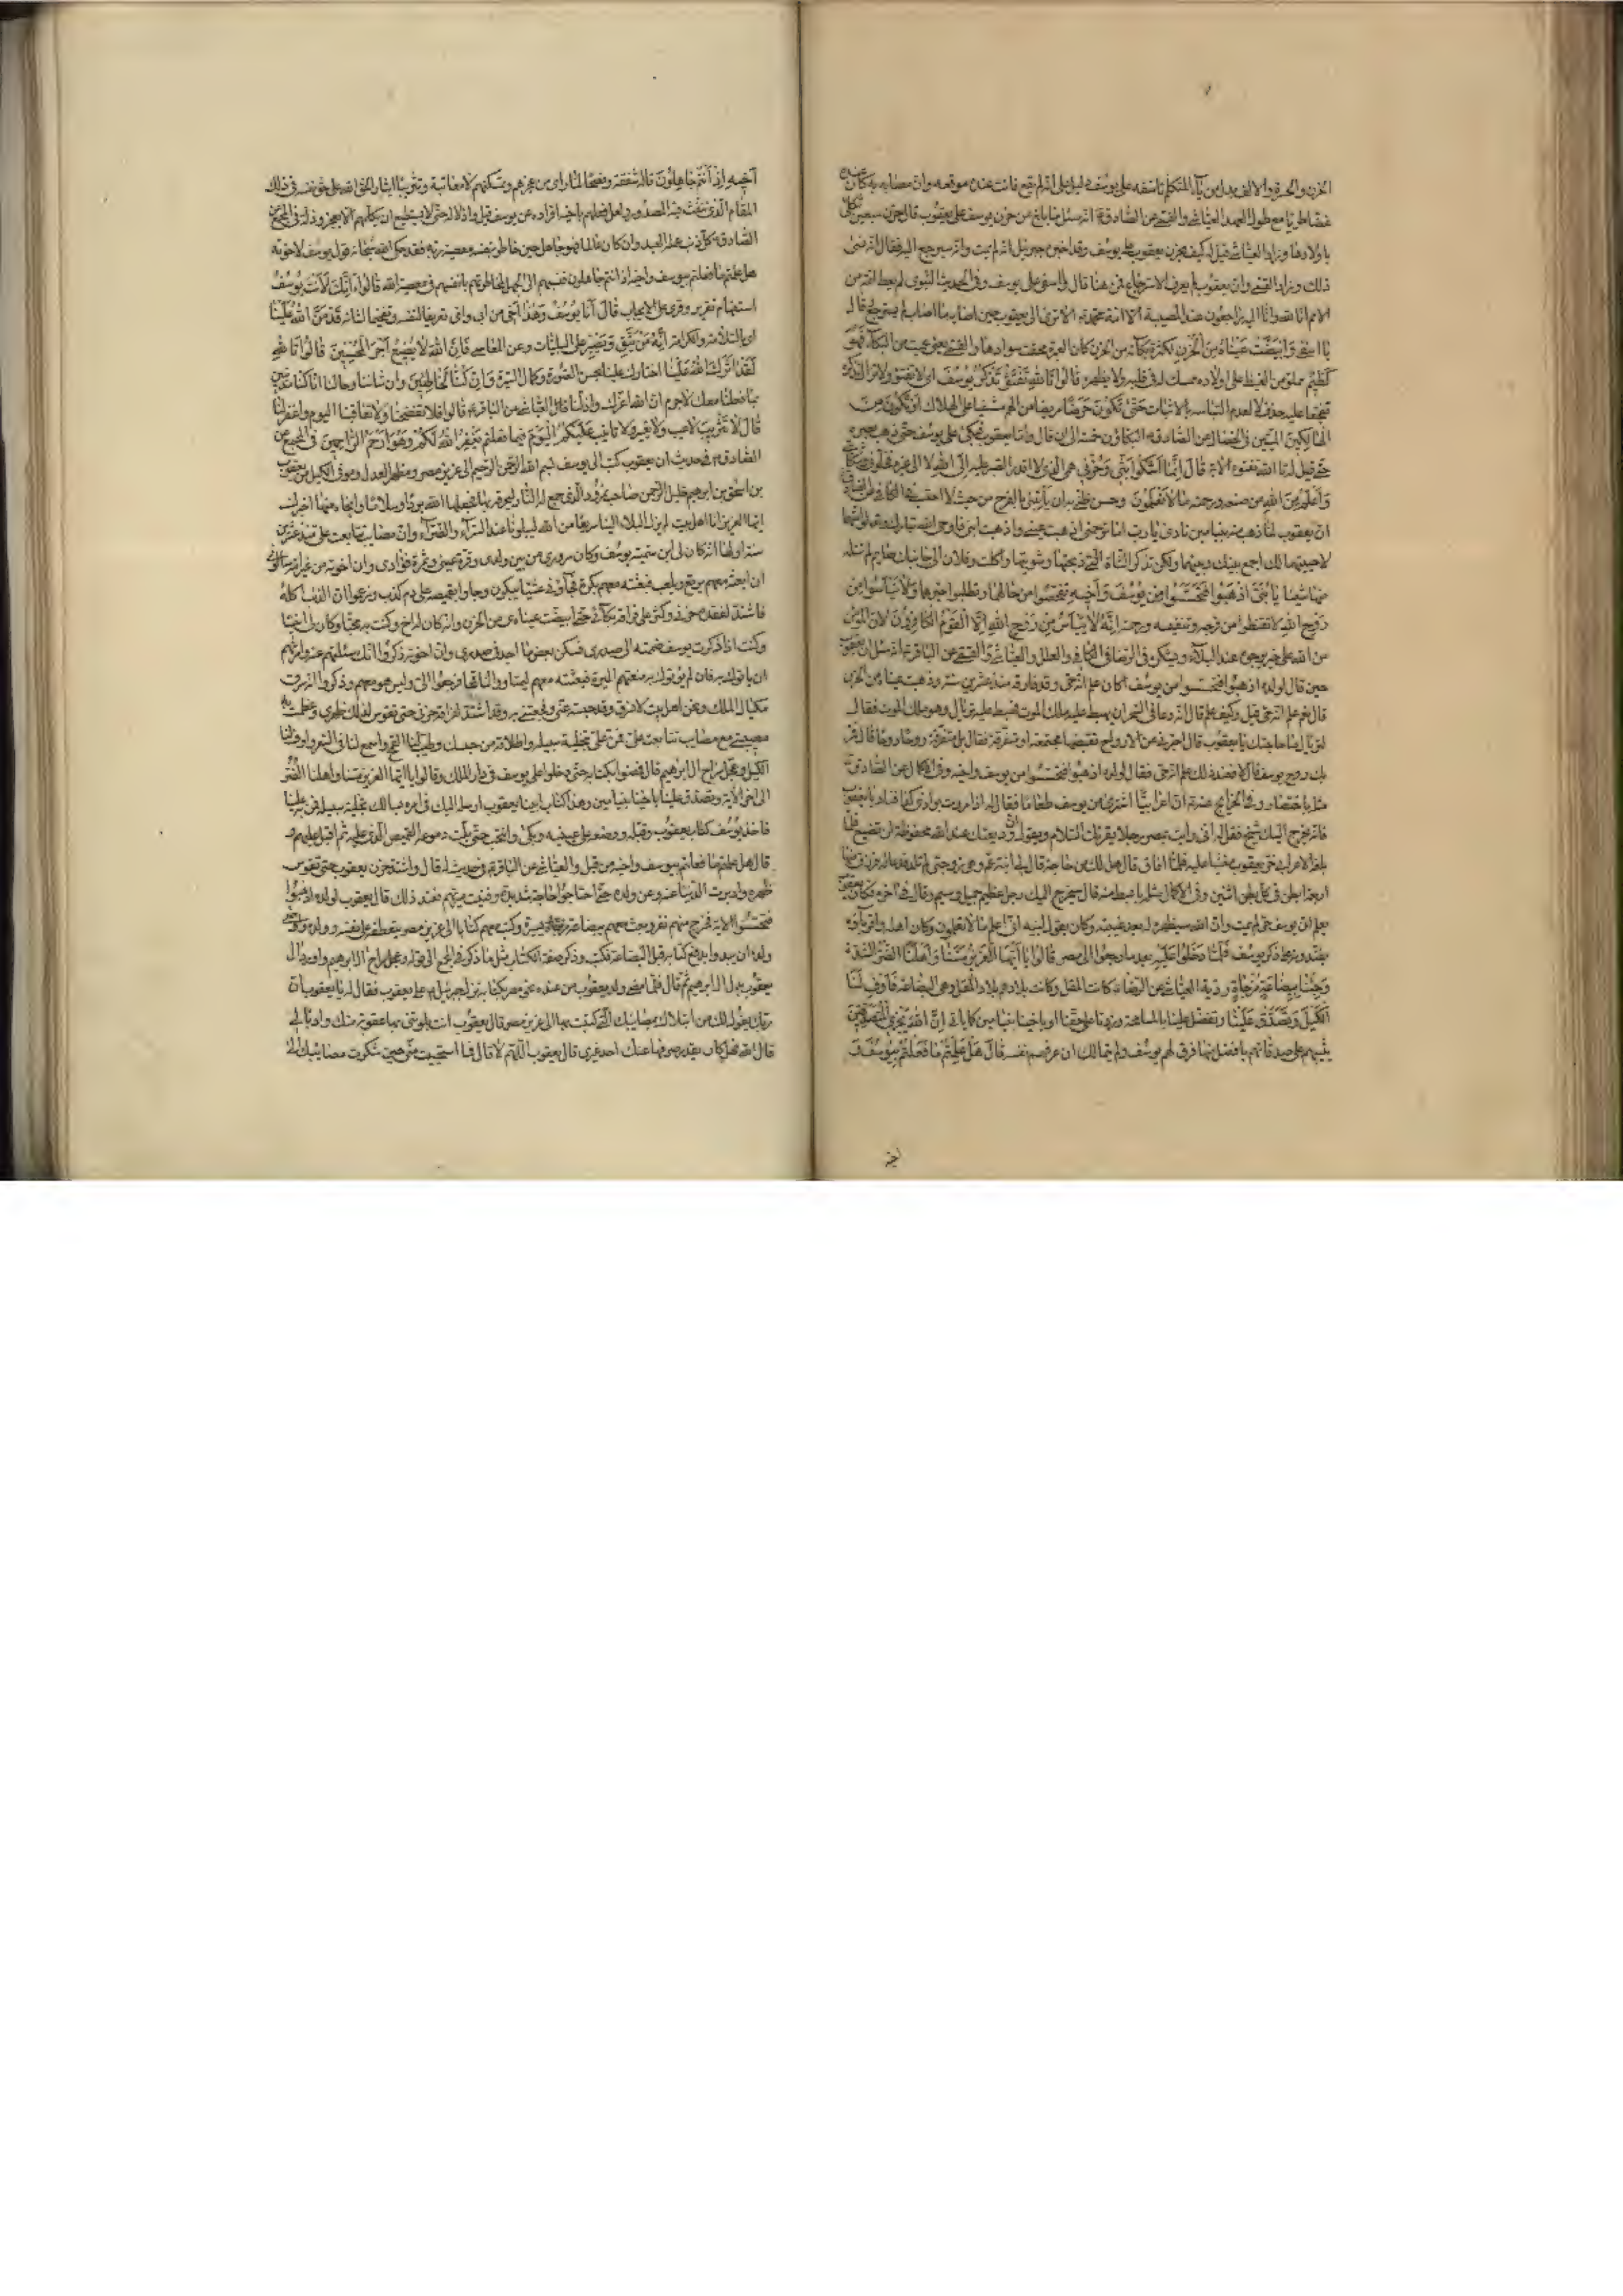 الحزن والحسرة والالف بدل من ياء المتكلم تاسفه على يوسف دليل على انه لم يقع فائت عنده موقعه وان مصابه به كان عنده
غضا طريا مع طول العهد العياشي والقمي عن الصادق انه سئل ما بلغ من حزن يوسف على يعقوب قال حزن سبعين ثكلى
باولادها وزاد العياشي قيل له كيف يحزن يعقوب على يوسف وقد اخبره جبرئيل انه لم يمت وانه سيرجع اليه فقال انه نسى
ذلك وزاد القمي وان يعقوب لم يعرف الاسترجاع فمن هنا قال وا اسفى على يوسف وفي الحديث النبوي لم يعط امة من
الامم انا لله وانا اليه راجعون عند المصيبة الا امة محمد الا ترى الى يعقوب حين اصابه ما اصاب لم يسترجع وقال
يا اسفى وَابْيَضَّتْ عَيْنَاهُ مِنَ الْحُزْنِ لكثرة بكائه من الحزن كان العبرة محقت سوادها والقمي يعني عميت من البكاء فَهُوَ
كَظِيمٌ مملو من الغيظ على اولاده ممسك له في قلبه ولا يظهره قَالُوا تَاللَّهِ تَفْتَؤُ تَذْكُرُ يُوسُفَ اي لا تفتؤ ولا تزال تذكره
تفجعا عليه حذف لا لعدم التباسه بالاثبات حَتَّى تَكُونَ حَرَضًا مريضا من الهم مشفيا على الهلاك أَوْ تَكُونَ مِنَ
الْهَالِكِينَ الميتين في الخصال عن الصادق البكاؤن خمسة الى ان قال واما يعقوب فبكى على يوسف حتى ذهب بصره
حتى قيل له تا الله تفتؤ الاية قَالَ إِنَّمَا أَشْكُو بَثِّي وَحُزْنِي همي الذي لا اقدر الصبر عليه إِلَى اللَّهِ لا الى غيره فخلوني وشكايتي
وَأَعْلَمُ مِنَ اللَّهِ من صنعه ورحمته مَا لَا تَعْلَمُونَ وحسن ظني به ان ياتيني بالفرج من حيث لا احتسب في الكافي عن الصادق
ان يعقوب لما ذهب منه بنيامين نادى يا رب اما ترحمني اذهبت عيني واذهبت ابني فاوحى الله تبارك وتعالى لو امتهما
لاحييتهما لك اجمع بينك وبينهما ولكن تذكر الشاة التي ذبحتها وشويتها واكلت وفلان الى جانبك صائم لم تنله
منها شيئا يَا بَنِيَّ اذْهَبُوا فَتَحَسَّسُوا مِنْ يُوسُفَ وَأَخِيهِ تفحصوا من حالهما وتطلبوا خبرهما وَلَا تَيْأَسُوا مِنْ
رَوْحِ اللَّهِ لا تقنطوا من فرجه وتنفيسه ورحمته إِنَّهُ لَا يَيْأَسُ مِنْ رَوْحِ اللَّهِ إِلَّا الْقَوْمُ الْكَافِرُونَ لان المؤمن
من الله على خير يرجوه عند البلاء ويشكره في الرخاء في الكافي والعلل والعياشي والقمي عن الباقر انه سئل ان يعقوب
حين قال لولده اذهبوا فتحسسوا من يوسف اكان علم انه حي وقد فارقه منذ عشرين سنة وذهبت عيناه من الحزن
قال نعم علم انه حي قيل وكيف علم قال انه دعا في السحر ان يهبط عليه ملك الموت فهبط عليه تربال وهو ملك الموت فقال له
تربال ما حاجتك يا يعقوب قال اخبرني عن الارواح تقبضها مجتمعة او متفرقة فقال بل متفرقة روحا روحا قال فمر
بك روح يوسف قال لا فعند ذلك علم انه حي فقال لولده اذهبوا فتحسسوا من يوسف واخيه وفي الاكمال عن الصادق
مثله باختصار وفي الخرايج عنه ان اعرابيا اشترى من يوسف طعاما فقال له اذا مررت بوادي كذا فناد يا يعقوب
فانه يخرج اليك شيخ فقل له اني رايت بمصر رجلا يقرئك السلام ويقول ان وديعتك عند الله محفوظة لن تضيع فلما
بلغه الاعرابي خر يعقوب مغشيا عليه فلما افاق قال هل لك من حاجة قال لي ابنة عم وهي زوجتي لم تلد فدعا له فرزق منها
اربعة ابطن في كل بطن اثنين وفي الاكمال مثله بابسط منه قال سيخرج اليك رجل عظيم جميل وسيم وقال في اخره فكان يعقوب
يعلم ان يوسف حي لم يمت وان الله سيظهره له بعد غيبته وكان يقول لبنيه اني اعلم ما لا تعلمون وكان اهله واقرباؤه
يفندونه على ذكره يوسف فَلَمَّا دَخَلُوا عَلَيْهِ بعد ما رجعوا الى مصر قَالُوا يَا أَيُّهَا الْعَزِيزُ مَسَّنَا وَأَهْلَنَا الضُّرُّ الشدة
وَجِئْنَا بِبِضَاعَةٍ مُزْجَاةٍ ردية العياشي عن الرضا كانت المقل وكانت بلادهم بلاد المقل وهي البضاعة فَأَوْفِ لَنَا
الْكَيْلَ وَتَصَدَّقْ عَلَيْنَا وتفضل علينا بالمسامحة وزدنا على حقنا او باخينا بنيامين كما ياتي إِنَّ اللَّهَ يَجْزِي الْمُتَصَدِّقِينَ
يثيبهم على صدقاتهم بافضل منها فرق لهم يوسف ولم يتمالك ان عرفهم نفسه قَالَ هَلْ عَلِمْتُمْ مَا فَعَلْتُمْ بِيُوسُفَ وَ
أَخِيهِ إِذْ أَنْتُمْ جَاهِلُونَ قاله شفقة ونصحا لما راى من عجزهم وتمسكنهم لا معاتبة وتثريبا ايثارا لحق الله على حق نفسه في ذلك
المقام الذي ينفث فيه المصدور ولعل فعلهم باخيه افراده عن يوسف قبل واذلاله حتى لا يستطيع ان يكلمهم الا بعجز وذلة في المجمع عن
الصادق كل ذنب عمله العبد وان كان عالما فهو جاهل حين خاطر بنفسه معصية ربه فقد حكى الله سبحانه قول يوسف لاخوته
هل علمتم ما فعلتم بيوسف واخيه اذ انتم جاهلون فنسبهم الى الجهل لمخاطرتهم بانفسهم في معصية الله قَالُوا أَإِنَّكَ لَأَنْتَ يُوسُفُ
استفهام تقرير وقرئ على الايجاب قَالَ أَنَا يُوسُفُ وَهَذَا أَخِي من ابي وامي تعريفا لنفسه وتفخيما لشانه قَدْ مَنَّ اللَّهُ عَلَيْنَا
اي بالسلامة والكرامة إِنَّهُ مَنْ يَتَّقِ وَيَصْبِرْ على البليات وعن المعاصي فَإِنَّ اللَّهَ لَا يُضِيعُ أَجْرَ الْمُحْسِنِينَ قَالُوا تَاللَّهِ
لَقَدْ آثَرَكَ اللَّهُ عَلَيْنَا اختارك علينا بحسن الصورة وكمال السيرة وَإِنْ كُنَّا لَخَاطِئِينَ وان شاننا وحالنا انا كنا مذنبين
بما فعلنا معك لا جرم ان الله اعزك واذلنا العياشي عن الباقر قالوا فلا تفضحنا ولا تعاقبنا اليوم واغفر لنا
قَالَ لَا تَثْرِيبَ لا عيب ولا تعيير ولا تانيب عَلَيْكُمُ الْيَوْمَ فيما فعلتم يَغْفِرُ اللَّهُ لَكُمْ وَهُوَ أَرْحَمُ الرَّاحِمِينَ في المجمع عن
الصادق في حديث ان يعقوب كتب الى يوسف بسم الله الرحمن الرحيم الى عزيز مصر ومظهر العدل وموفي الكيل من يعقوب
بن اسحق بن ابرهيم خليل الرحمن صاحب نمرود الذي جمع له النار ليحرقه بها فجعلها الله بردا وسلاما وانجاه منها اخبرك
ايها العزيز انا اهل بيت لم يزل البلاء الينا سريعا من الله ليبلونا عند السراء والضراء وان مصايب تتابعت علي منذ عشرين
سنة اولها انه كان لي ابن سميته يوسف وكان سروري من بين ولدي وقرة عيني وثمرة فؤادي وان اخوته من غير امه سالوني
ان ابعثه معهم يرتع ويلعب فبعثته معهم بكرة فجاؤني عشيا يبكون وجاؤا بقميصه على دم كذب وزعموا ان الذئب اكله
فاشتد لفقده حزني وكثر على فراقه بكائي حتى ابيضت عيناي من الحزن وانه كان له اخ وكنت به معجبا وكان لي انيسا
وكنت اذا ذكرت يوسف ضممته الى صدري فسكن بعض ما اجد في صدري وان اخوته ذكروا انك سئلتهم عنه وامرتهم
ان ياتوك به فان لم ياتوك به منعتهم الميرة فبعثته معهم ليمتاروا لنا قمحا فرجعوا الي وليس هو معهم وذكروا انه سرق
مكيال الملك ونحن اهل بيت لا نسرق وقد حبسته عني وفجعتني به وقد اشتد لفراقه حزني حتى تقوس لذلك ظهري وعظمت به
مصيبتي مع مصايب تتابعت علي فمن علي بتخلية سبيله واطلاقه من حبسك وطيب لنا القمح واسمح لنا في السعر واوف لنا
الكيل وعجل سراح ال ابرهيم قال فمضوا بكتابه حتى دخلوا على يوسف في دار الملك وقالوا يا ايها العزيز مسنا واهلنا الضر
الى اخر الاية وتصدق علينا باخينا بنيامين وهذا كتاب ابينا يعقوب ارسله اليك في امره يسالك تخلية سبيله فمن به علينا
فاخذ يوسف كتاب يعقوب وقبله ووضعه على عينيه وبكى وانتحب حتى بلت دموعه القميص الذي عليه ثم اقبل عليهم و
قال هل علمتم ما فعلتم بيوسف واخيه من قبل والعياشي عن الباقر في حديث له قال واشتد حزن يعقوب حتى تقوس
ظهره وادبرت الدنيا عنه وعن ولده حتى احتاجوا حاجة شديدة وفنيت ميرتهم فعند ذلك قال يعقوب لولده اذهبوا
فتحسسوا الاية فخرج منهم نفر وبعث معهم ببضاعة يسيرة وكتب معهم كتابا الى عزيز مصر يتعطفه على نفسه وولده واوصى
ولده ان يبدوا بدفع كتابه قبل البضاعة فكتب وذكر صفة الكتاب مثل ما ذكر في المجمع الى قوله وعجل سراح ال ابرهيم واورد ال
يعقوب بدل ال ابرهيم ثم قال فلما مضى ولد يعقوب من عنده نحو مصر بكتابه نزل جبرئيل على يعقوب فقال له يا يعقوب ان
ربك يقول لك من ابتلاك بمصايبك التي كتبت بها الى عزيز مصر قال يعقوب انت بلوتني بها عقوبة منك وادبا لي
قال الله فهل كان يقدر على صرفها عنك احد غيري قال يعقوب اللهم لا قال فما استحييت مني حين شكوت مصايبك الى